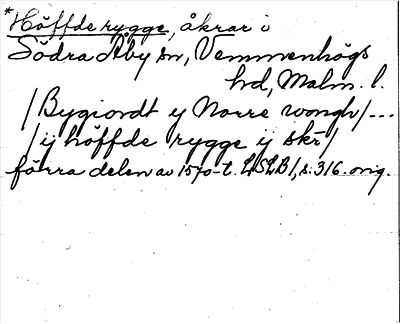 *Höffde rygge, åkrar i
Södra Åby sn, Vemmenhögs
hd, Malm. l.
/Bygiordt y Norre wongh/...
/ij höffde rygge ij skr/
förra delen av 1570-t. LSLB1, s. 316. orig.